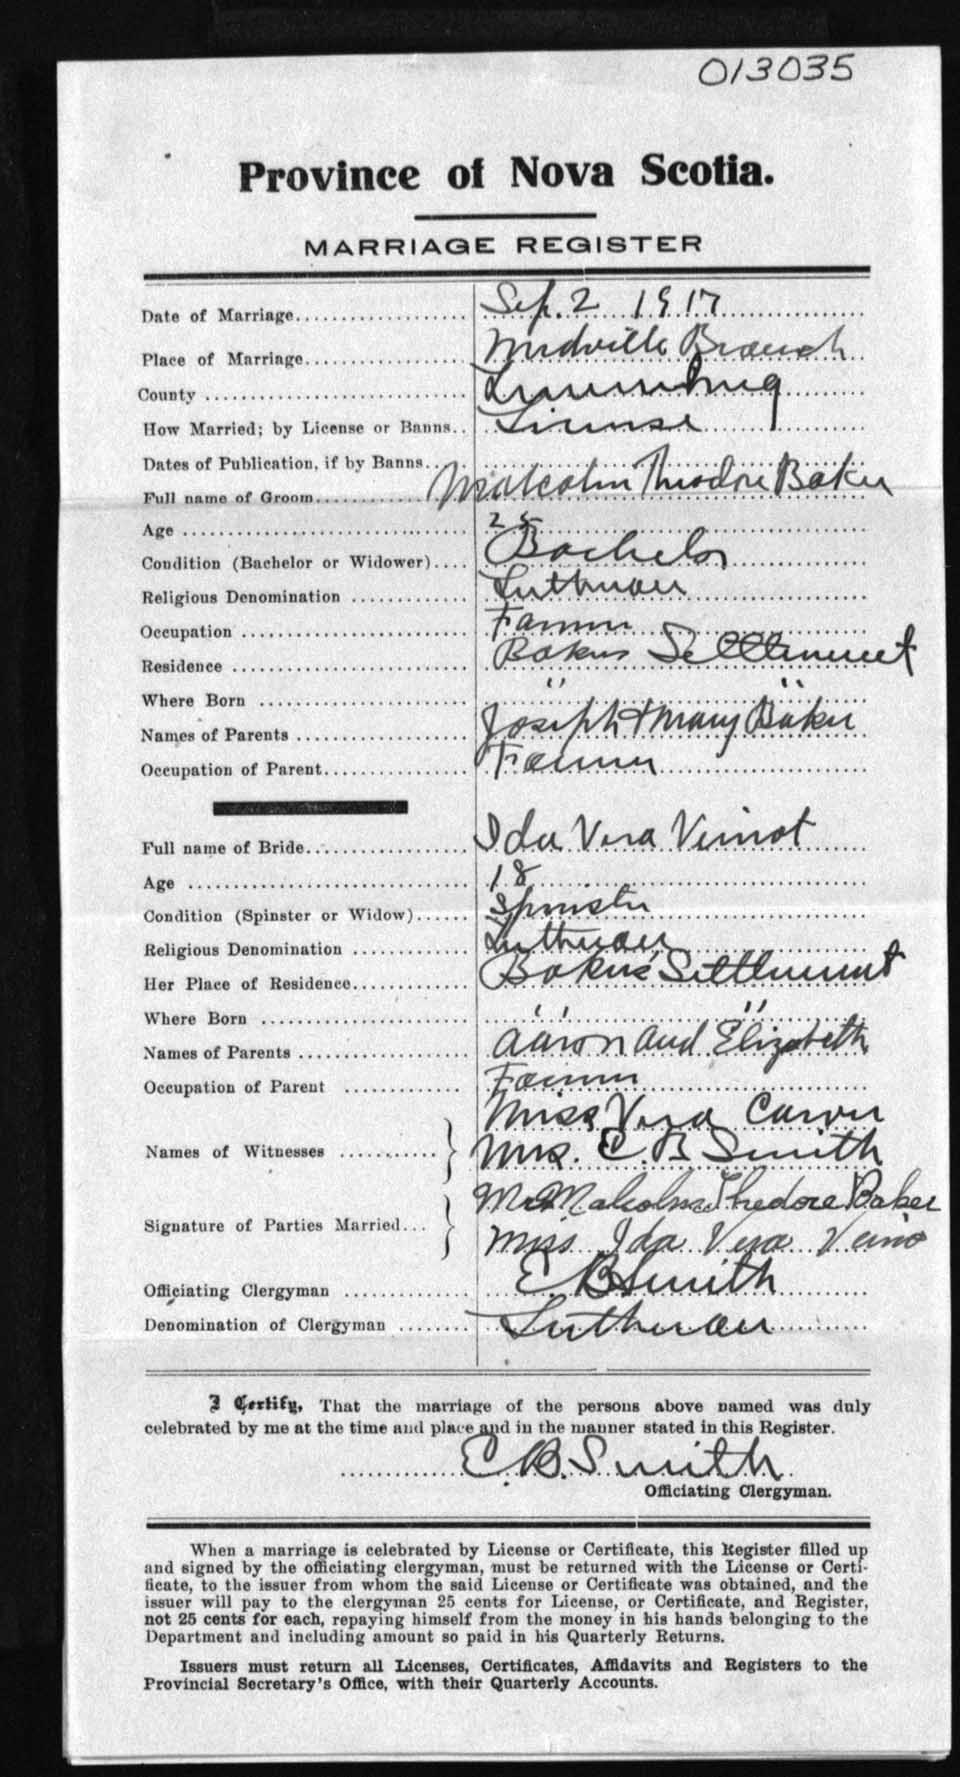 013035
Province of Nova Scotia.
MARRIAGE REGISTER
Date of Marriage Sep. 2 1917
Place of Marriage Midville Branch
County Lunenburg
How Married; by License or Banns License
Dates of Publication, if by Banns
Full name of Groom Malcolm Theodore Baker
Age 25
Condition (Bachelor or Widower) Bachelor
Religious Denomination Lutheran
Occupation Farmer
Residence Bakers Settlement
Where Born " "
Names of Parents Joseph + Mary Baker
Occupation of Parent Farmer
Full name of Bride Ida Vera Veinot
Age 18
Condition (Spinster or Widow) Spinster
Religious Denomination Lutheran
Her Place of Residence Bakers Settlement
Where Born " "
Names of Parents Aaron and Elizabeth
Occupation of Parent Farmer
Names of Witnesses Miss Vera Carver
Mrs. E. B Smith
Signature of Parties Married Mr Malcolm Thedore Baker
Miss Ida Vera Veino
Officiating Clergyman E B Smith
Denomination of Clergyman Lutheran
I Certify, That the marriage of the persons above named was duly
celebrated by me at the time and place and in the manner stated in this Register.
E. B. Smith
Officiating Clergyman.
When a marriage is celebrated by License or Certificate, this Register filled up
and signed by the officiating clergyman, must be returned with the License or Certi-
ficate, to the issuer from whom the said License or Certificate was obtained, and the
issuer will pay to the clergyman 25 cents for License, or Certificate, and Register,
not 25 cents for each, repaying himself from the money in his hands belonging to the
Department and including amount so paid in his Quarterly Returns.
Issuers must return all Licenses, Certificates, Affidavits and Registers to the
Provincial Secretary's Office, with their Quarterly Accounts.